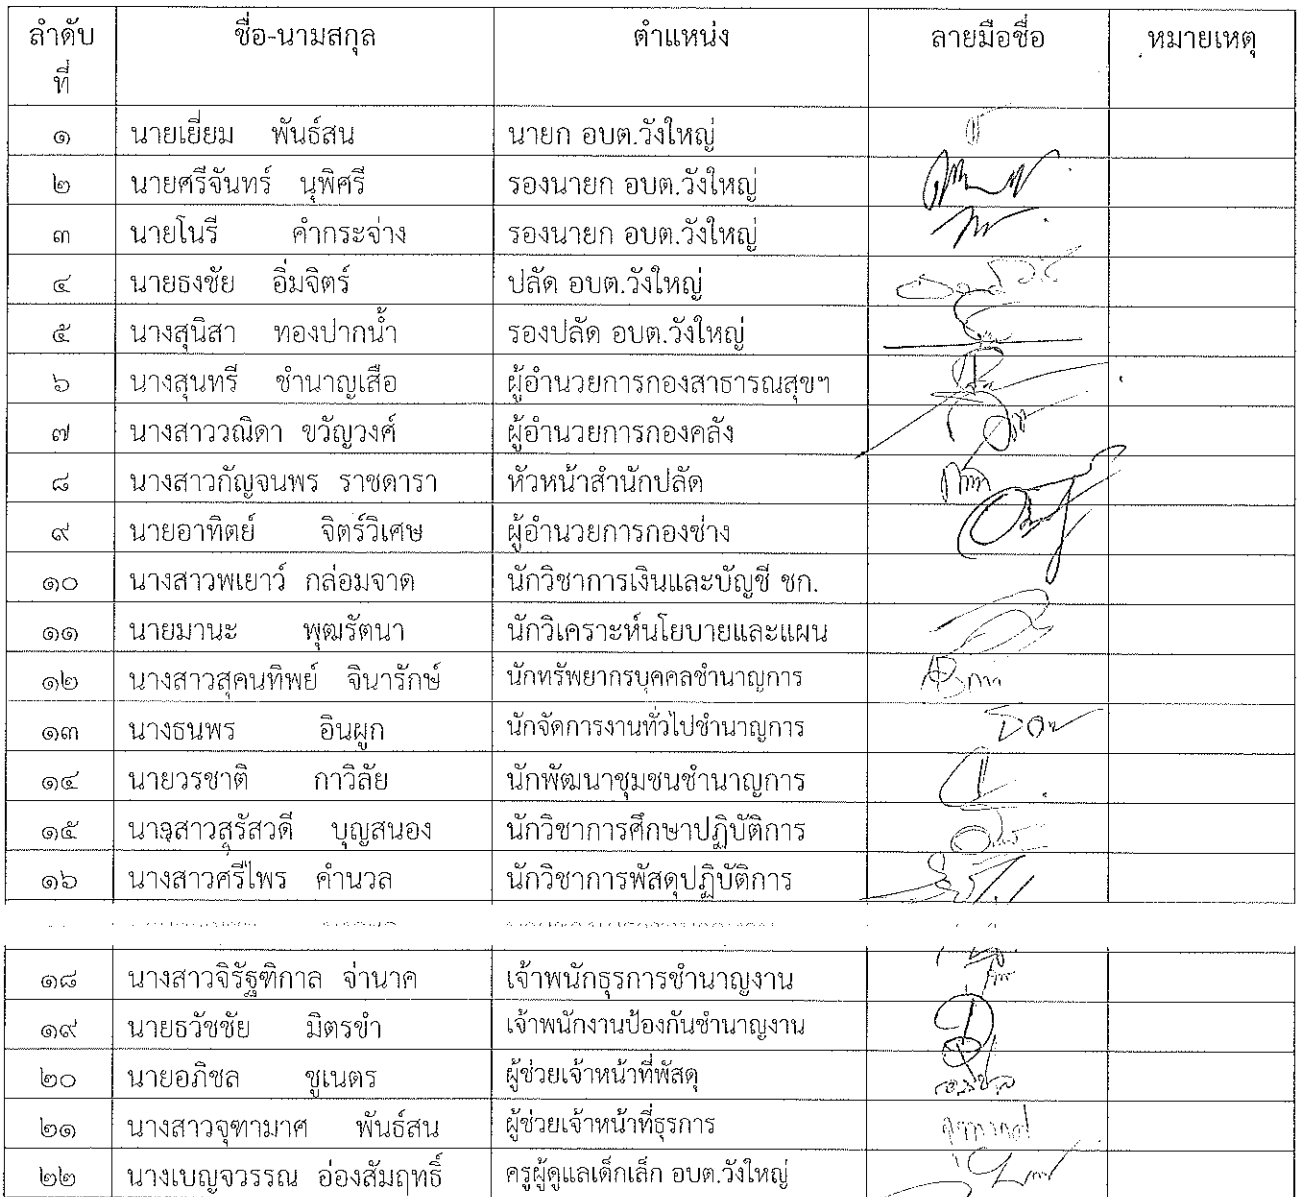 ลำดับ ชื่อ-นามสกุล ตำแหน่ง ลายมือชื่อ หมายเหตุ
ที่
๑ นายเยี่ยม พันธ์สน นายก อบต.วังใหญ่
๒ นายศรีจันทร์ นุพิศรี รองนายก อบต.วังใหญ่
๓ นายโนรี คำกระจ่าง รองนายก อบต.วังใหญ่
๔ นายธงชัย อิ่มจิตร์ ปลัด อบต.วังใหญ่
๕ นางสุนิสา ทองปากน้ำ รองปลัด อบต.วังใหญ่
๖ นางสุนทรี ชำนาญเสือ ผู้อำนวยการกองสาธารณสุขฯ
๗ นางสาววณิดา ขวัญวงศ์ ผู้อำนวยการกองคลัง
๘ นางสาวกัญจนพร ราชดารา หัวหน้าสำนักปลัด
๙ นายอาทิตย์ จิตร์วิเศษ ผู้อำนวยการกองช่าง
๑๐ นางสาวพเยาว์ กล่อมจาด นักวิชาการเงินและบัญชี ชก.
๑๑ นายมานะ พุฒรัตนา นักวิเคราะห์นโยบายและแผน
๑๒ นางสาวสุคนทิพย์ จินารักษ์ นักทรัพยากรบุคคลชำนาญการ
๑๓ นางธนพร อินผูก นักจัดการงานทั่วไปชำนาญการ
๑๔ นายวรชาติ กาวิลัย นักพัฒนาชุมชนชำนาญการ
๑๕ นางสาวสุรัสวดี บุญสนอง นักวิชาการศึกษาปฏิบัติการ
๑๖ นางสาวศรีไพร คำนวล นักวิชาการพัสดุปฏิบัติการ
๑๘ นางสาวจิรัฐฑิกาล จ่านาค เจ้าพนักธุรการชำนาญงาน
๑๙ นายธวัชชัย มิตรขำ เจ้าพนักงานป้องกันชำนาญงาน
๒๐ นายอภิชล ชูเนตร ผู้ช่วยเจ้าหน้าที่พัสดุ
๒๑ นางสาวจุฑามาศ พันธ์สน ผู้ช่วยเจ้าหน้าที่ธุรการ
๒๒ นางเบญจวรรณ อ่องสัมฤทธิ์ ครูผู้ดูแลเด็กเล็ก อบต.วังใหญ่